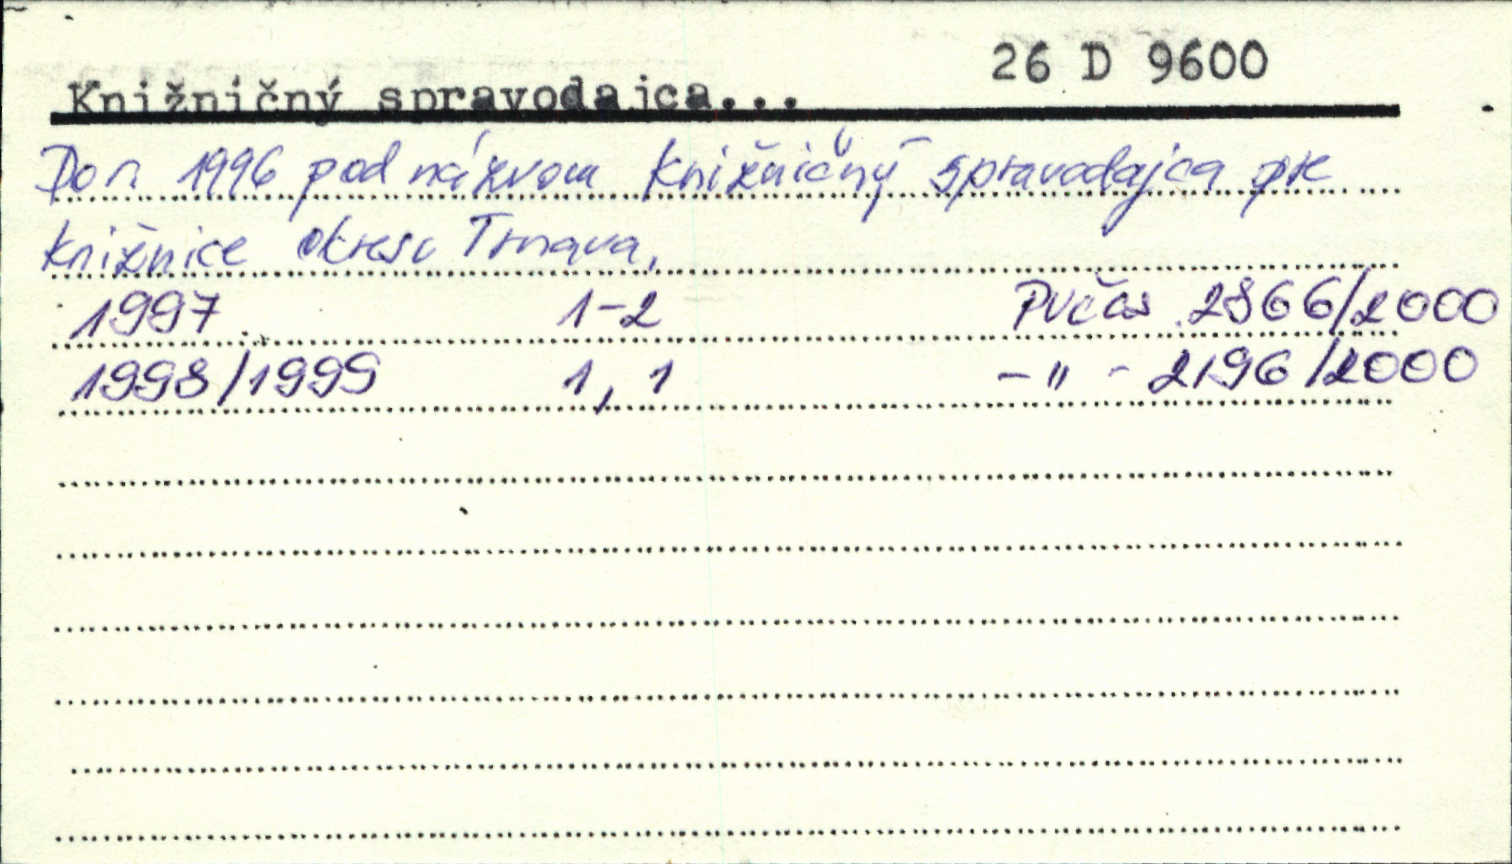 26 D 9600
Knižničný spravodajca...
Do r. 1996 pod názvom Knižničný spravodajca pre
knižnice okresu Trnava.
1997 1-2 PVčas 2866/2000
1998/1999 1, 1 -"- 2196/2000